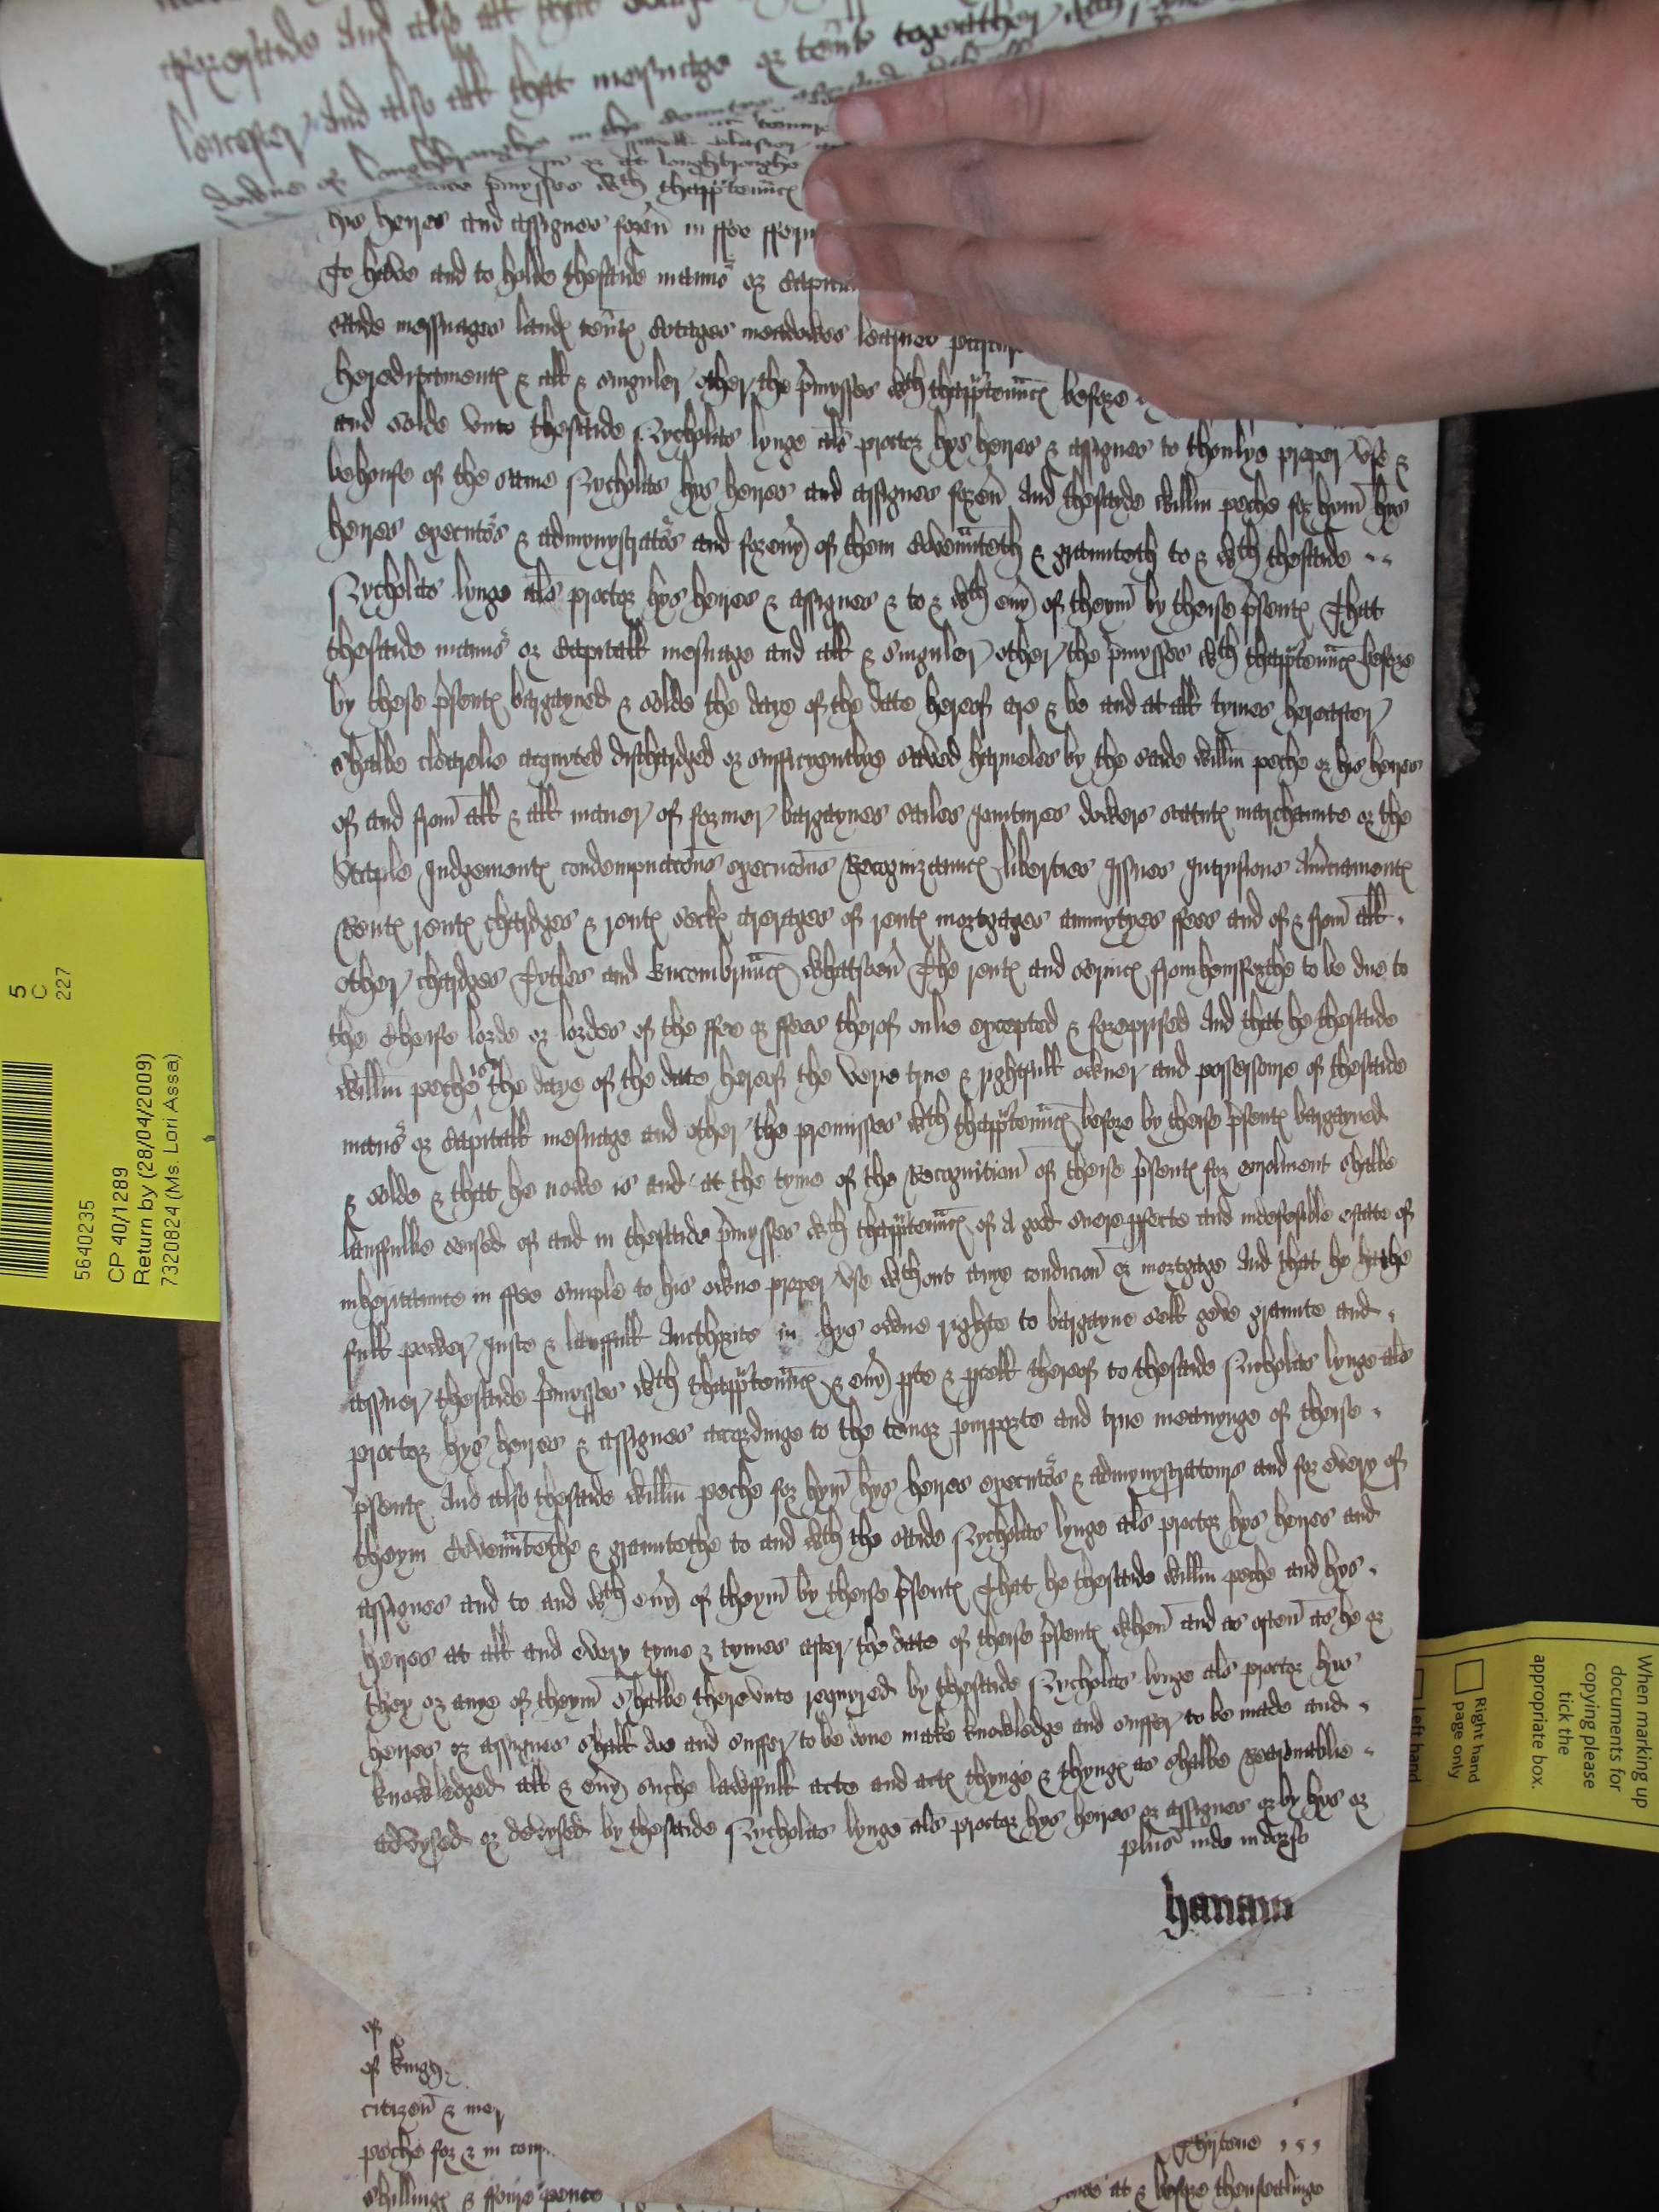 aforesaide And also all that
leicester And also all that mesuage or tente together with
of loughbroughe in the Countie aforesaide
in or at loughbroughe
premysses wth thapp'tennc{es}
his heires and assignes forev' in ffee fferm
To have and to holde thesaide mannor or Capitall
saide messuages land{es} ten't{es} Cotages meadowes leasues pasture
heredytament{es} & all & singuler other the p'mysses wth thapp'tennc{es} before
and solde vnto thesaide Nycholas lynge als proctor hys heires & assignes to thonlye proper vse &
behoufe of the same Nycholas hys heires and assignes forev' And thesayde will'm peche for hym hys
heires executors & admynystrators and for eny' of them Coven'nteth & graunteth to & wth thesaide
Nycholas lynge als proctor hys heires & assignes & to & wth eny' of theym by theise p'sent{es} That
thesaide mannor or Capitall mesuage and all & singuler other the p'mysses wth thapp'tennc{es} before
by these p'sent{es} bargayned & solde the daye of the date hereof are & be and at all tymes hereafter
shalbe clearelie acquited dischardged or sufficyentlye saved harmeles by the saide will'm peche or his heires
of and from all & all maner of former bargaynes sailes Joyntures dowers statut{es} marchaunte or the
Staple Judgement{es} condempnacons execucons Recognizannc{es} liberties Issues Intrusions Am'ciament{es}
Rent{es} rent{es} chardges & rent{es} seck{es} arerages of rent{es} mortgages annuytyes ffees and of & from all
other chardges Tytles and Encombrannc{es} whatsoev' The rent{es} and servic{es} fromhensforthe to be due to
the Cheife lorde or lordes of the ffee or ffees therof onlie excepted & foreprised And that he thesaide
will'm peche is the daye of the date hereof the verie true & rightfull owner and possessoure of thesaide
manor or Capitall mesuage and other the premisses wth thapp'tennc{es} before by theise p'sent{es} bargayned
& solde & that he nowe is and at the tyme of the Recognition of theise p'sent{es} for enrolment shalbe
laufullie seised of and in thesaide p'mysses wth thapp'tennc{es} of a good suere p'fecte and indefesible estate of
inheritaunce in ffee simple to his owne proper vse wthout anye condicion or mortgage And that he hathe
full power Juste & laufull Aucthorite in hys owne righte to bargayne sell geve graunte and
assuer thesaide p'mysses wth thapp'tennc{es} & eny' p'te & p'cell thereof to thesaide Nicholas lynge als
proctor hys heires & assignes accordinge to the tenor purporte and true meanynge of theise
p'sent{es} And also thesaide will'm peche for hym hys heires executors & admynystratours and for every of
theym Coven'ntethe & grauntethe to and wth the saide Nycholas lynge als proctor hys heires and
assignes and to and wth eny' of theym by theise p'sent{es} That he thesaide will'm peche and hys
heires at all and every tyme & tymes after the date of theise p'sent{es} when and as often as he or
they or anye of theym shalbe therevnto requyred by thesaide Nycholas lynge als proctor his
heires or assignes shall doe and suffer to be done make knowledge and suffer to be made and
knowledged all & eny' suche lawfull acte and act{es} thynge & thyng{es} as shalbe Reasonablie
advysed or devysed by thesaide Nycholas lynge als proctor hys heires or assignes or by hys or
plus inde in dorso
hanam
of
of king
citizen & mer
peche for & in
Thyrtene
shilling{es} & ffoure pence
at & before thensealinge
5
C
227
5640235
CP 40/1289
Return by (28/04/2009)
7320824 (Ms. Lori Assa)
When marking up
documents for
copying please
tick the
appropriate box.
Right hand
page only
Left hand